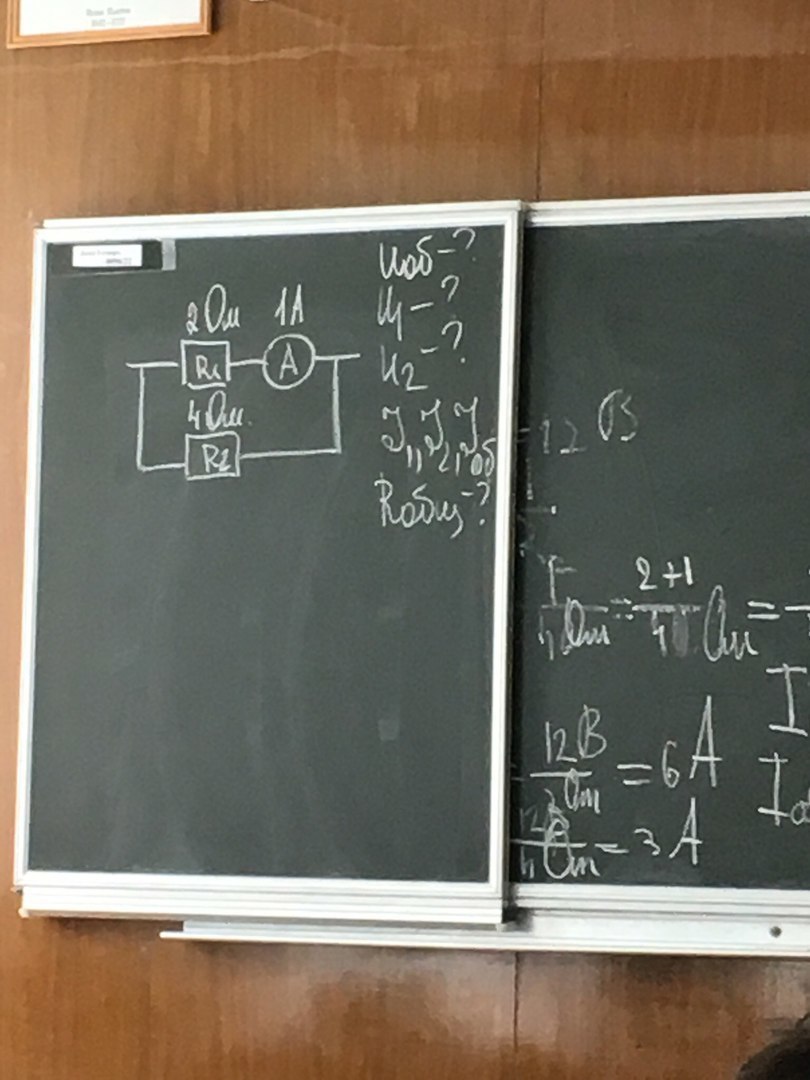 2 Ом 1А
R1 A
4 Ом.
R2
Uоб - ?
U1 - ?
U2 - ?
I1, I2, Iоб
Rобщ - ?
=12 В
Ом = 2+1/4 Ом =
12В/2Ом = 6 А
12В/4Ом = 3 А
I
Iо